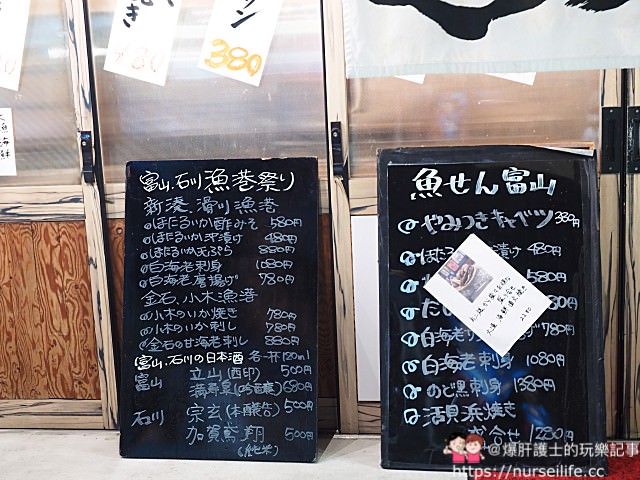 380
380
富山、石川漁港祭り
新湊、滑川漁港
ほたるいか酢みそ 580円
ほたるいか沖漬け 480円
ほたるいか天ぷら 880円
白海老刺身 1080円
白海老唐揚げ 780円
金石、小木漁港
小木のいか焼き 780円
小木のいか刺し 780円
金石の甘海老刺し 880円
富山、石川の日本酒 各一杯180ml
富山 立山(西印) 500円
満寿泉(吟醸) 680円
石川 宗玄(本醸造) 500円
加賀鳶 翔 500円
(純米)
魚せん富山
やみつきキャベツ 380円
ほたる 漬け 480円
580円
白海老 780円
白海老刺身 1080円
のど黒刺身 1380円
活貝浜焼き
盛合せ 1280円
@爆肝護士的玩樂記事
https://nurseilife.cc